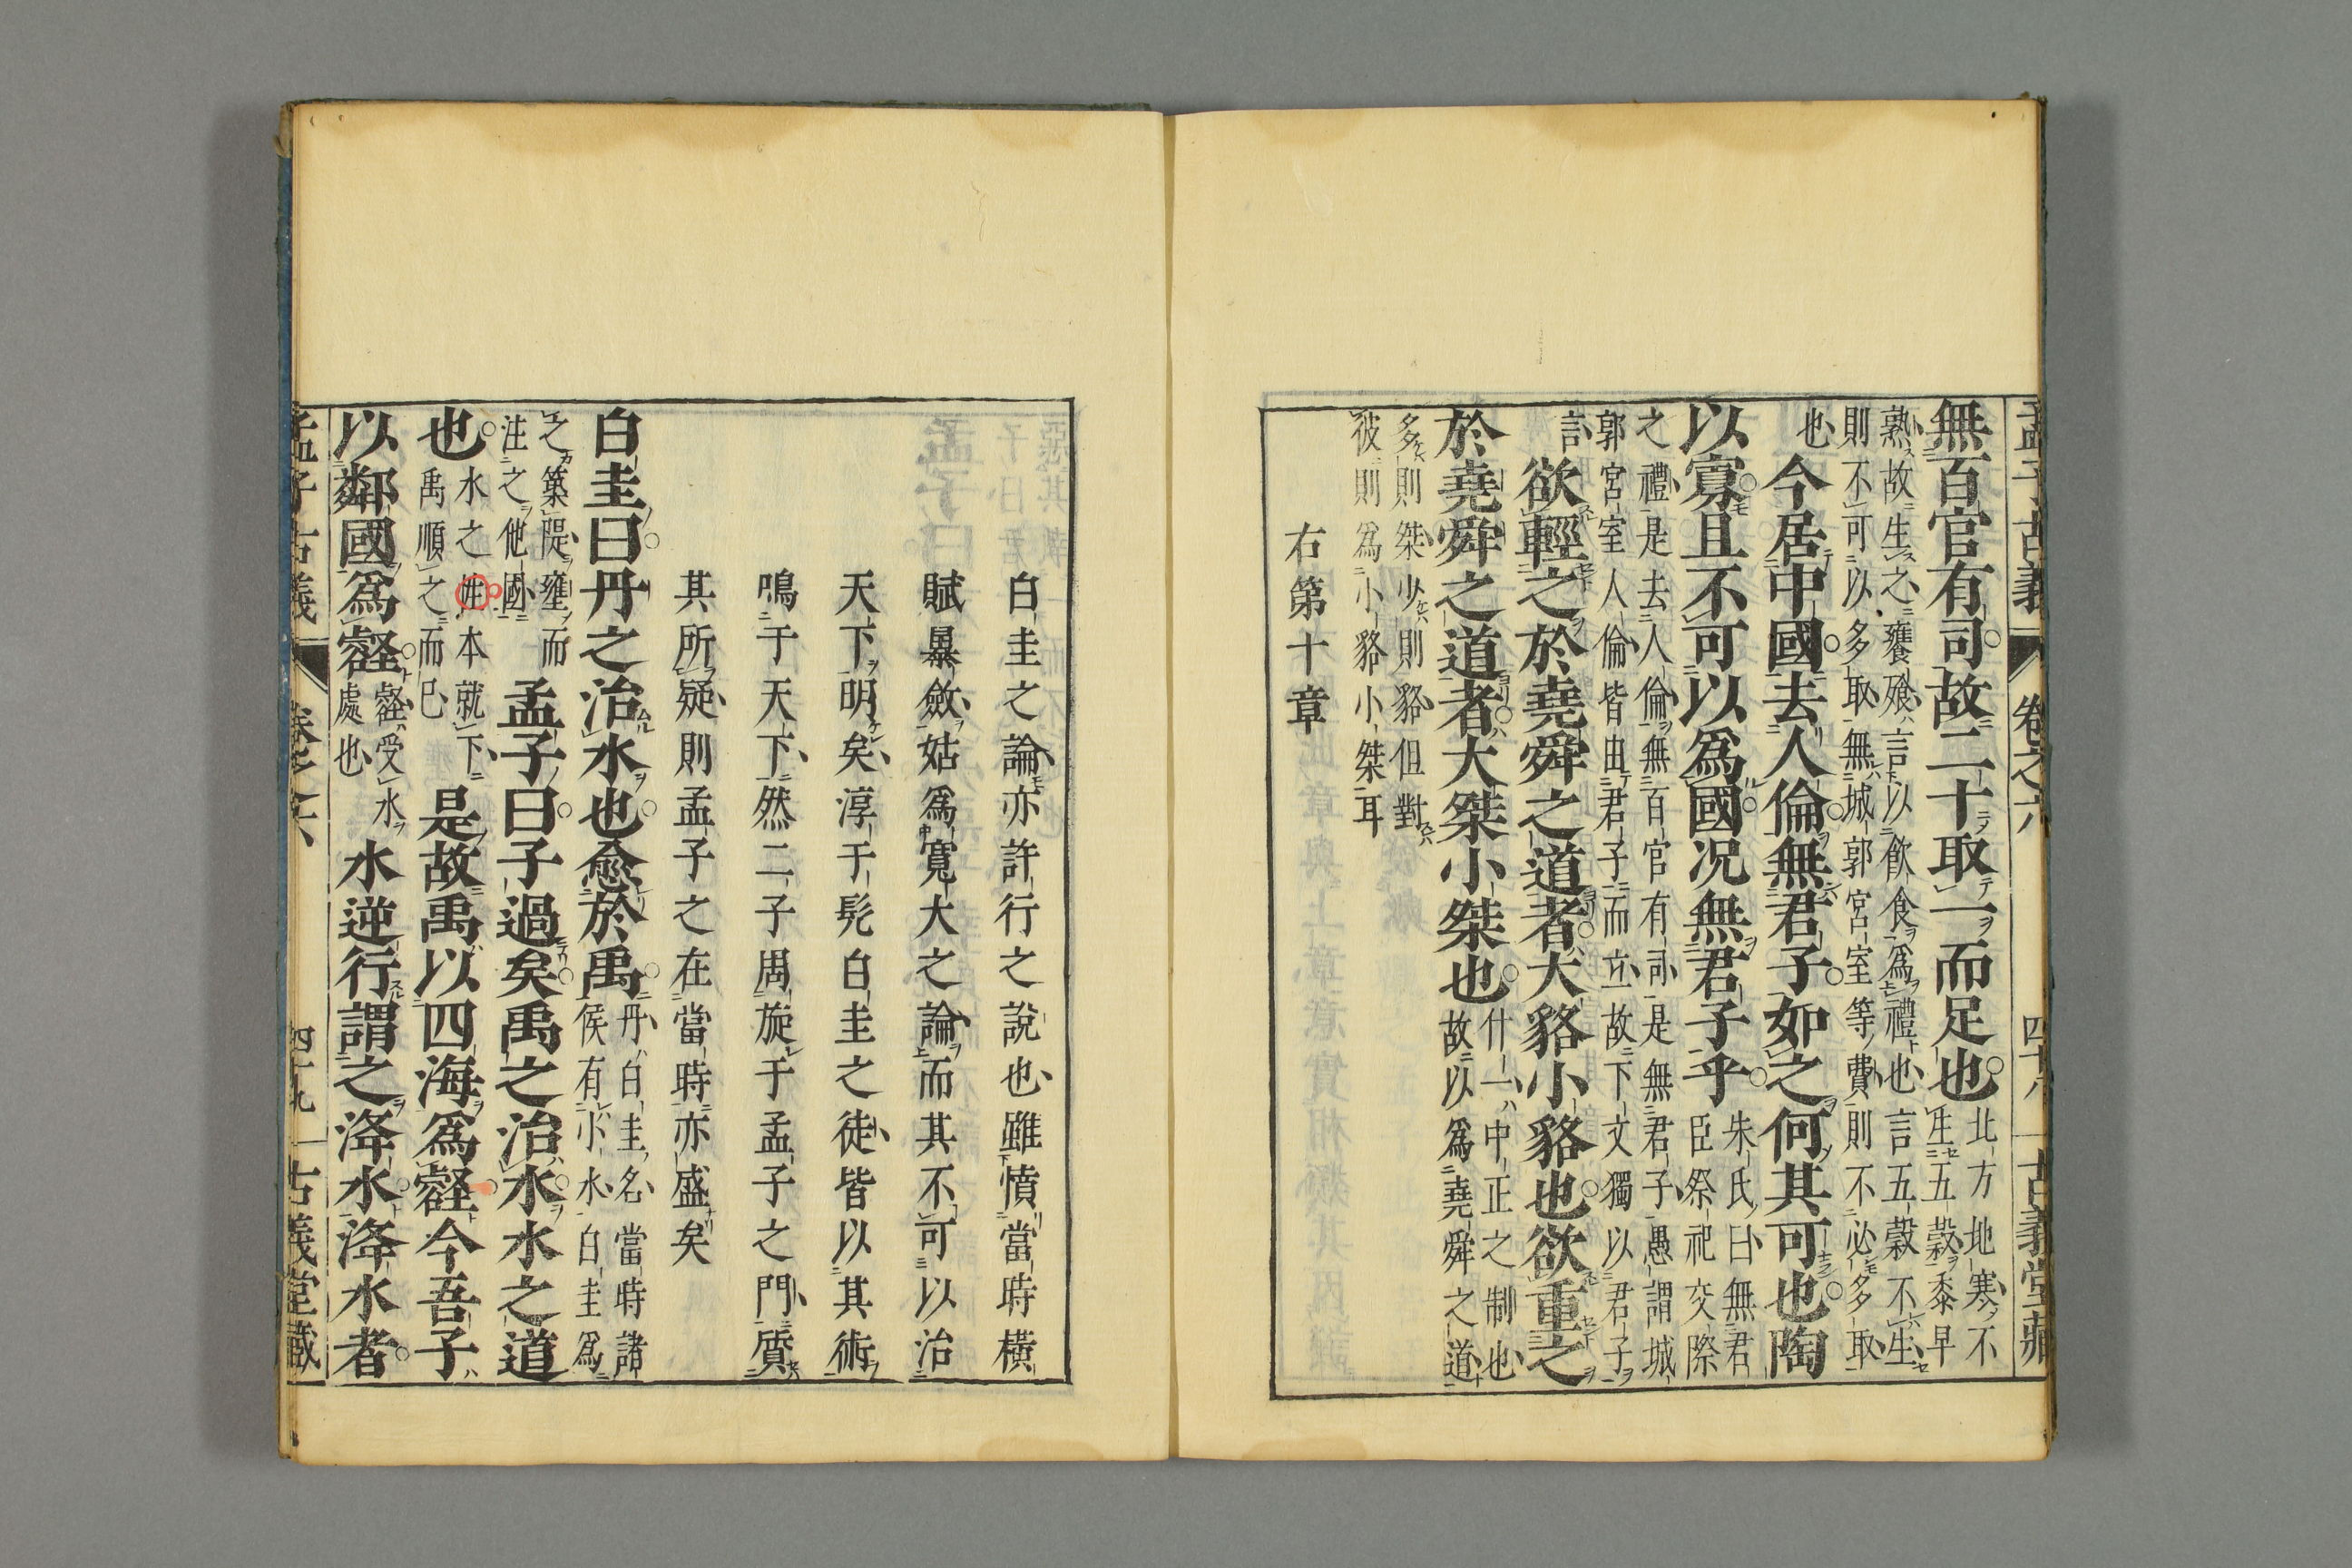 孟子古義 卷之六 四十八 古義堂藏
無百官有司故二十取一而足也
北方地寒不
生五穀黍早
熟故生之饔飱言以飲食爲禮也言五穀不生
則不可以多取無城郭宮室等費則不必多取
也
今居中國去人倫無君子如之何其可也陶
以寡且不可以爲國况無君子乎
朱氏曰無君
臣祭祀交際
之禮是去人倫無百官有司是無君子愚謂城
郭宮室人倫皆由君子而立故下文獨以君子
言
欲輕之於堯舜之道者大貉小貉也欲重之
於堯舜之道者大桀小桀也
什一中正之制也
故以爲堯舜之道
多則桀少則貉但對
彼則爲小貉小桀耳
右第十章
白圭之論亦許行之說也雖憤當時橫
賦暴斂姑爲寬大之論而其不可以治
天下明矣淳于髡白圭之徒皆以其術
鳴于天下然二子周旋于孟子之門質
其所疑則孟子之在當時亦盛矣
白圭曰丹之治水也愈於禹
丹白圭名當時諸
侯有小水白圭爲
之築隄壅而
注之他國
孟子曰子過矣禹之治水水之道
也
水之姓本就下
禹順之而已
是故禹以四海爲壑今吾子
以鄰國爲壑
壑受水
處也
水逆行謂之洚水洚水者
孟子古義 卷之六 四十九 古義堂藏